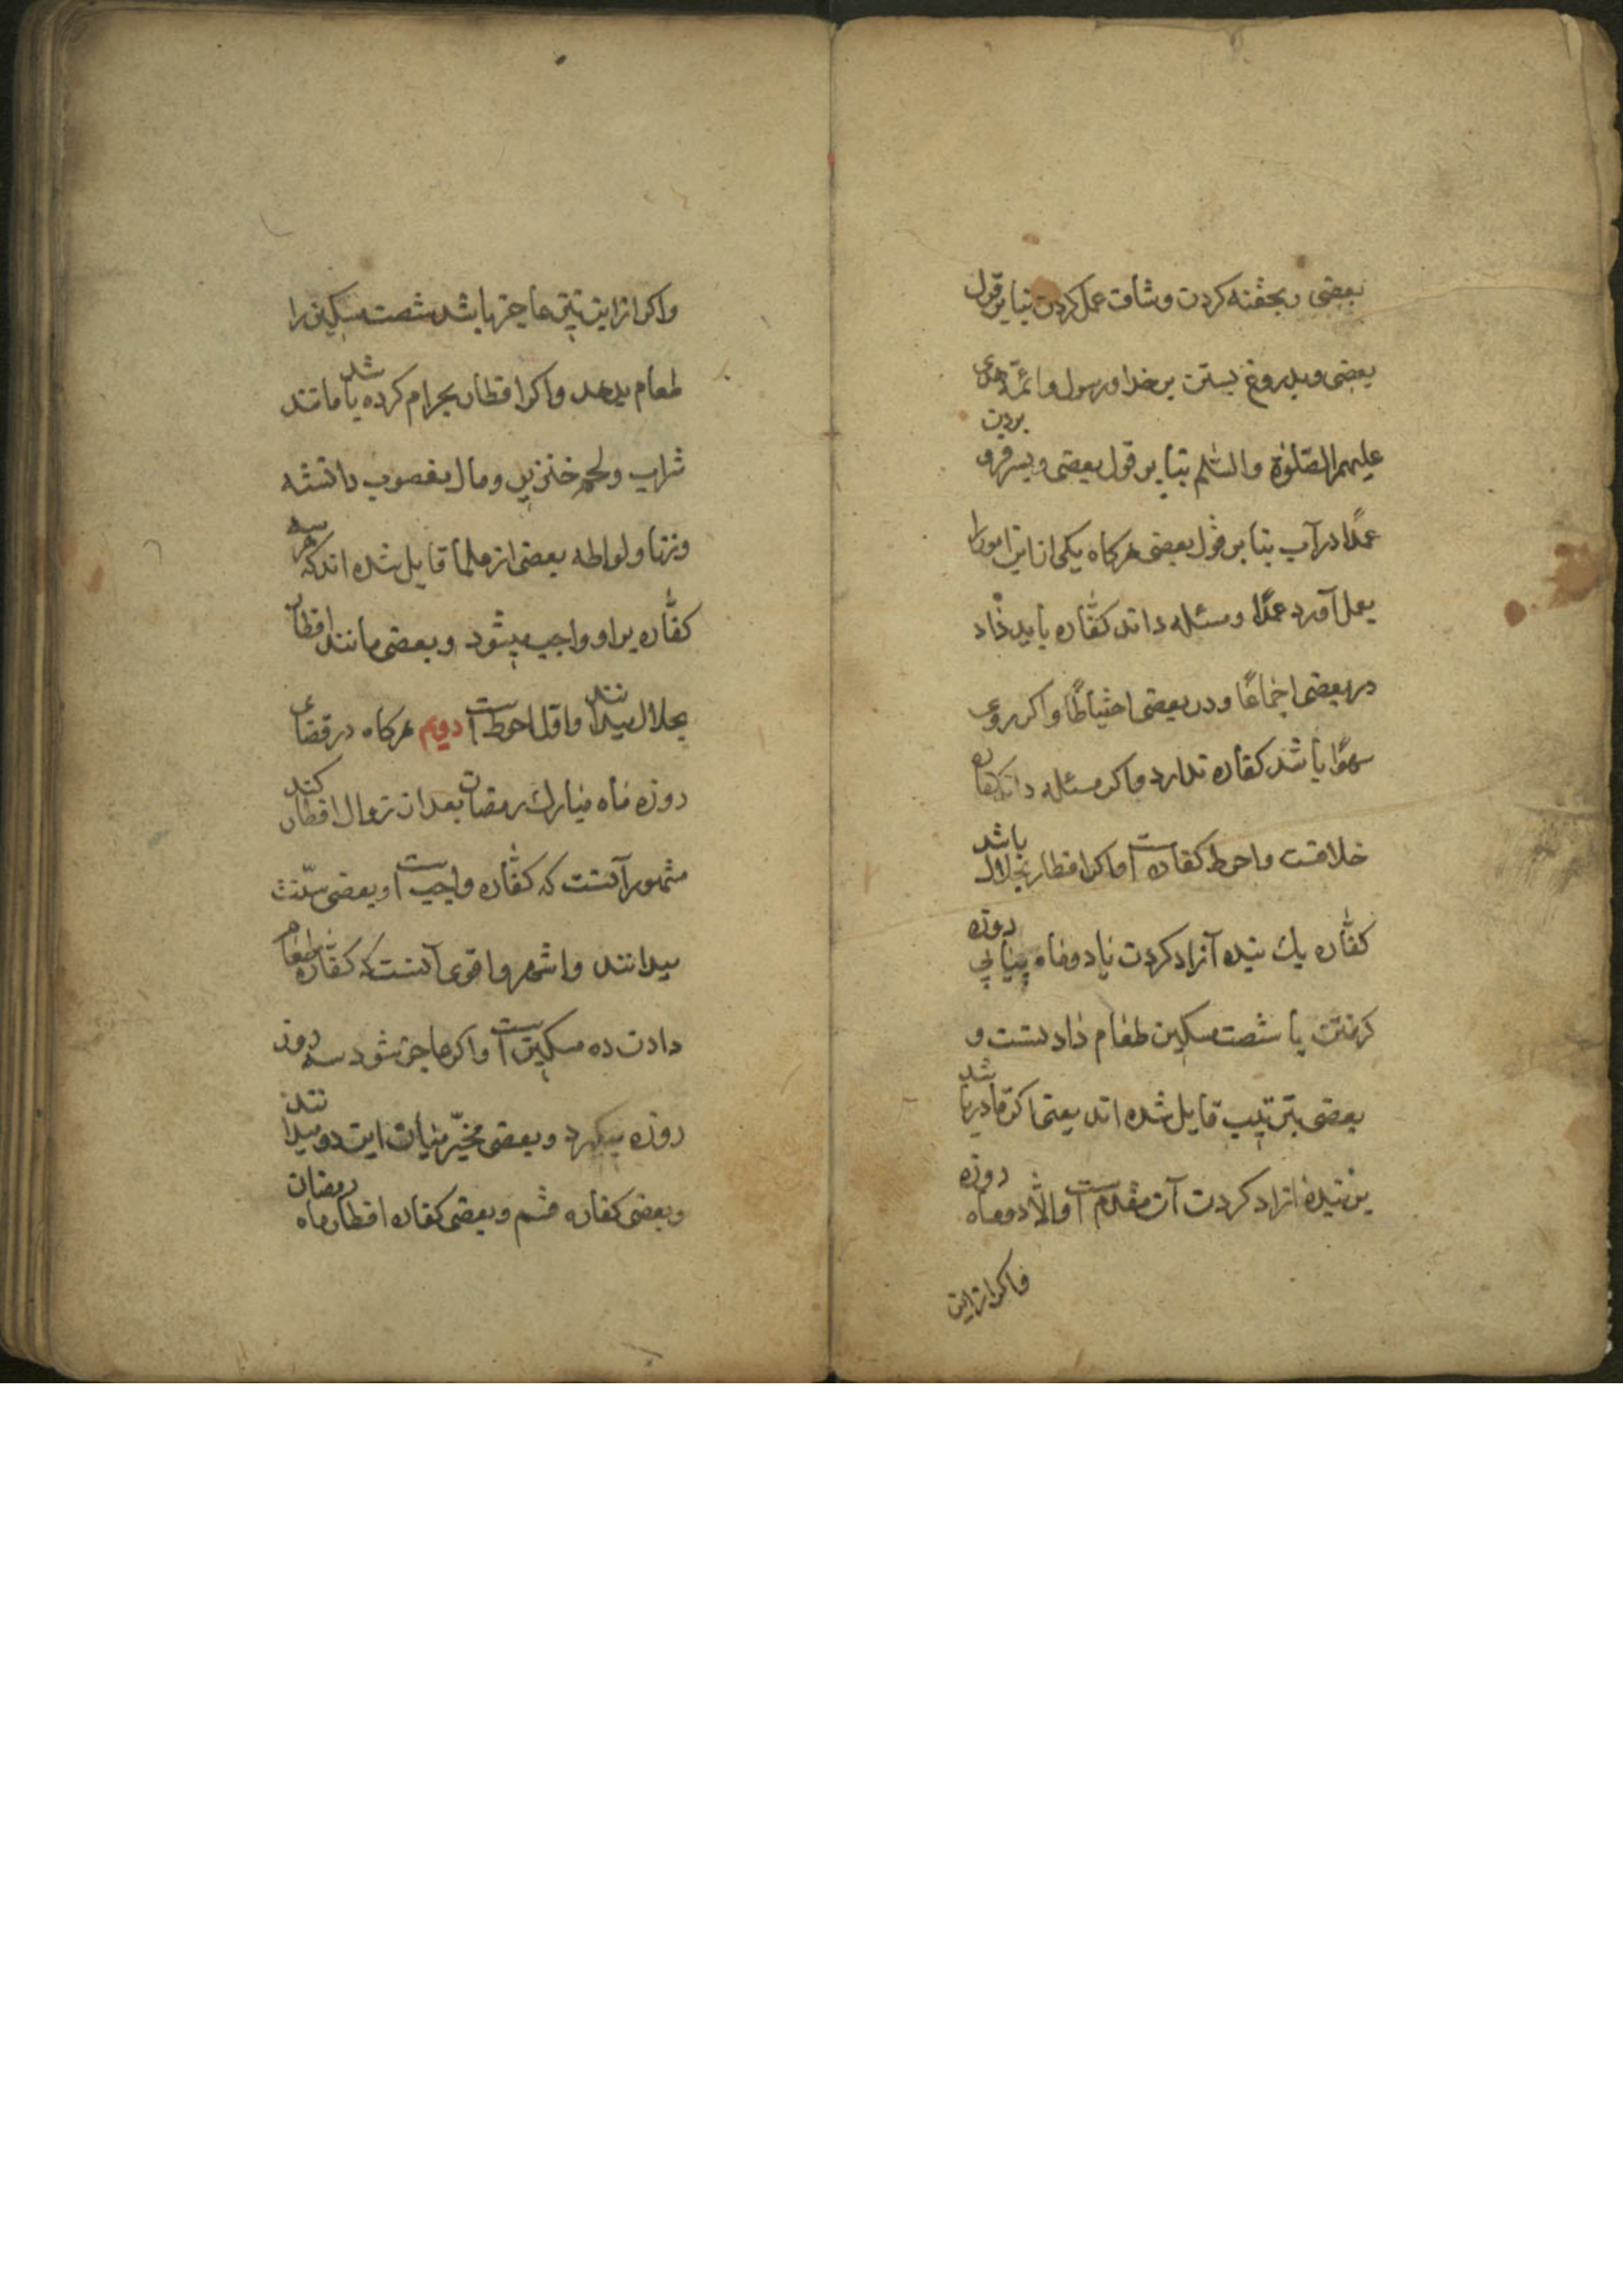 بعضی و بحقنه کردن و شاف عمل کردن بنابر قول
بعضی و بدروغ بستن بر خدا و رسول و ائمّه هدی
علیهم الصّلوة و السّلم بنا بر قول بعضی و بسر فرو بردن
عمدًا در آب بنا بر قول بعضی هرکاه یکی از این امور را
بعمل آورد عمدًا و مسئله داند کفّاره باید داد
در بعضی اجماعًا و در بعضی احتیاطًا و اکر از روی
سهوًا باشد کفاره ندارد و اکر مسئله داند کفاره
خلافست و احوط کفاره است و اکر افطار بحلال باشد
کفّاره یك بنده آزاد کردن یا دو ماه پیاپی روزه
کرفتن یا شصت مسکین طعام دادنست و
بعضی بترتیب قایل شده اند یعنی اکر قادر باشد
بر بنده ازاد کردن آن مقدم است و الّا دو ماه روزه
و اکر از این
و اکر از این نیز عاجز باشد شصت مسکین را
طعام بدهد و اکر افطار بحرام کرده باشد مانند
شراب و لحم خنزیر و مال مغصوب دانسته
و زنا و لواطه بعضی از علما قایل شده اند که هر سه
کفّاره بر او واجب میشود و بعضی مانند افطار
بحلال میدانند و اول احوط است دویم هرکاه در قضای
روزه ماه مبارك رمضان بعد از زوال افطار کند
مشهور آنست که کفّاره واجب است و بعضی سنّت
میدانند و اشهر و اقوی آنست که کفّاره طعام
دادن ده مسکین است و اکر عاجز شود سه روز
روزه میکیرد و بعضی مخیّر میان این دو میدانند
و بعضی کفاره قسم و بعضی کفاره افطار ماه رمضان